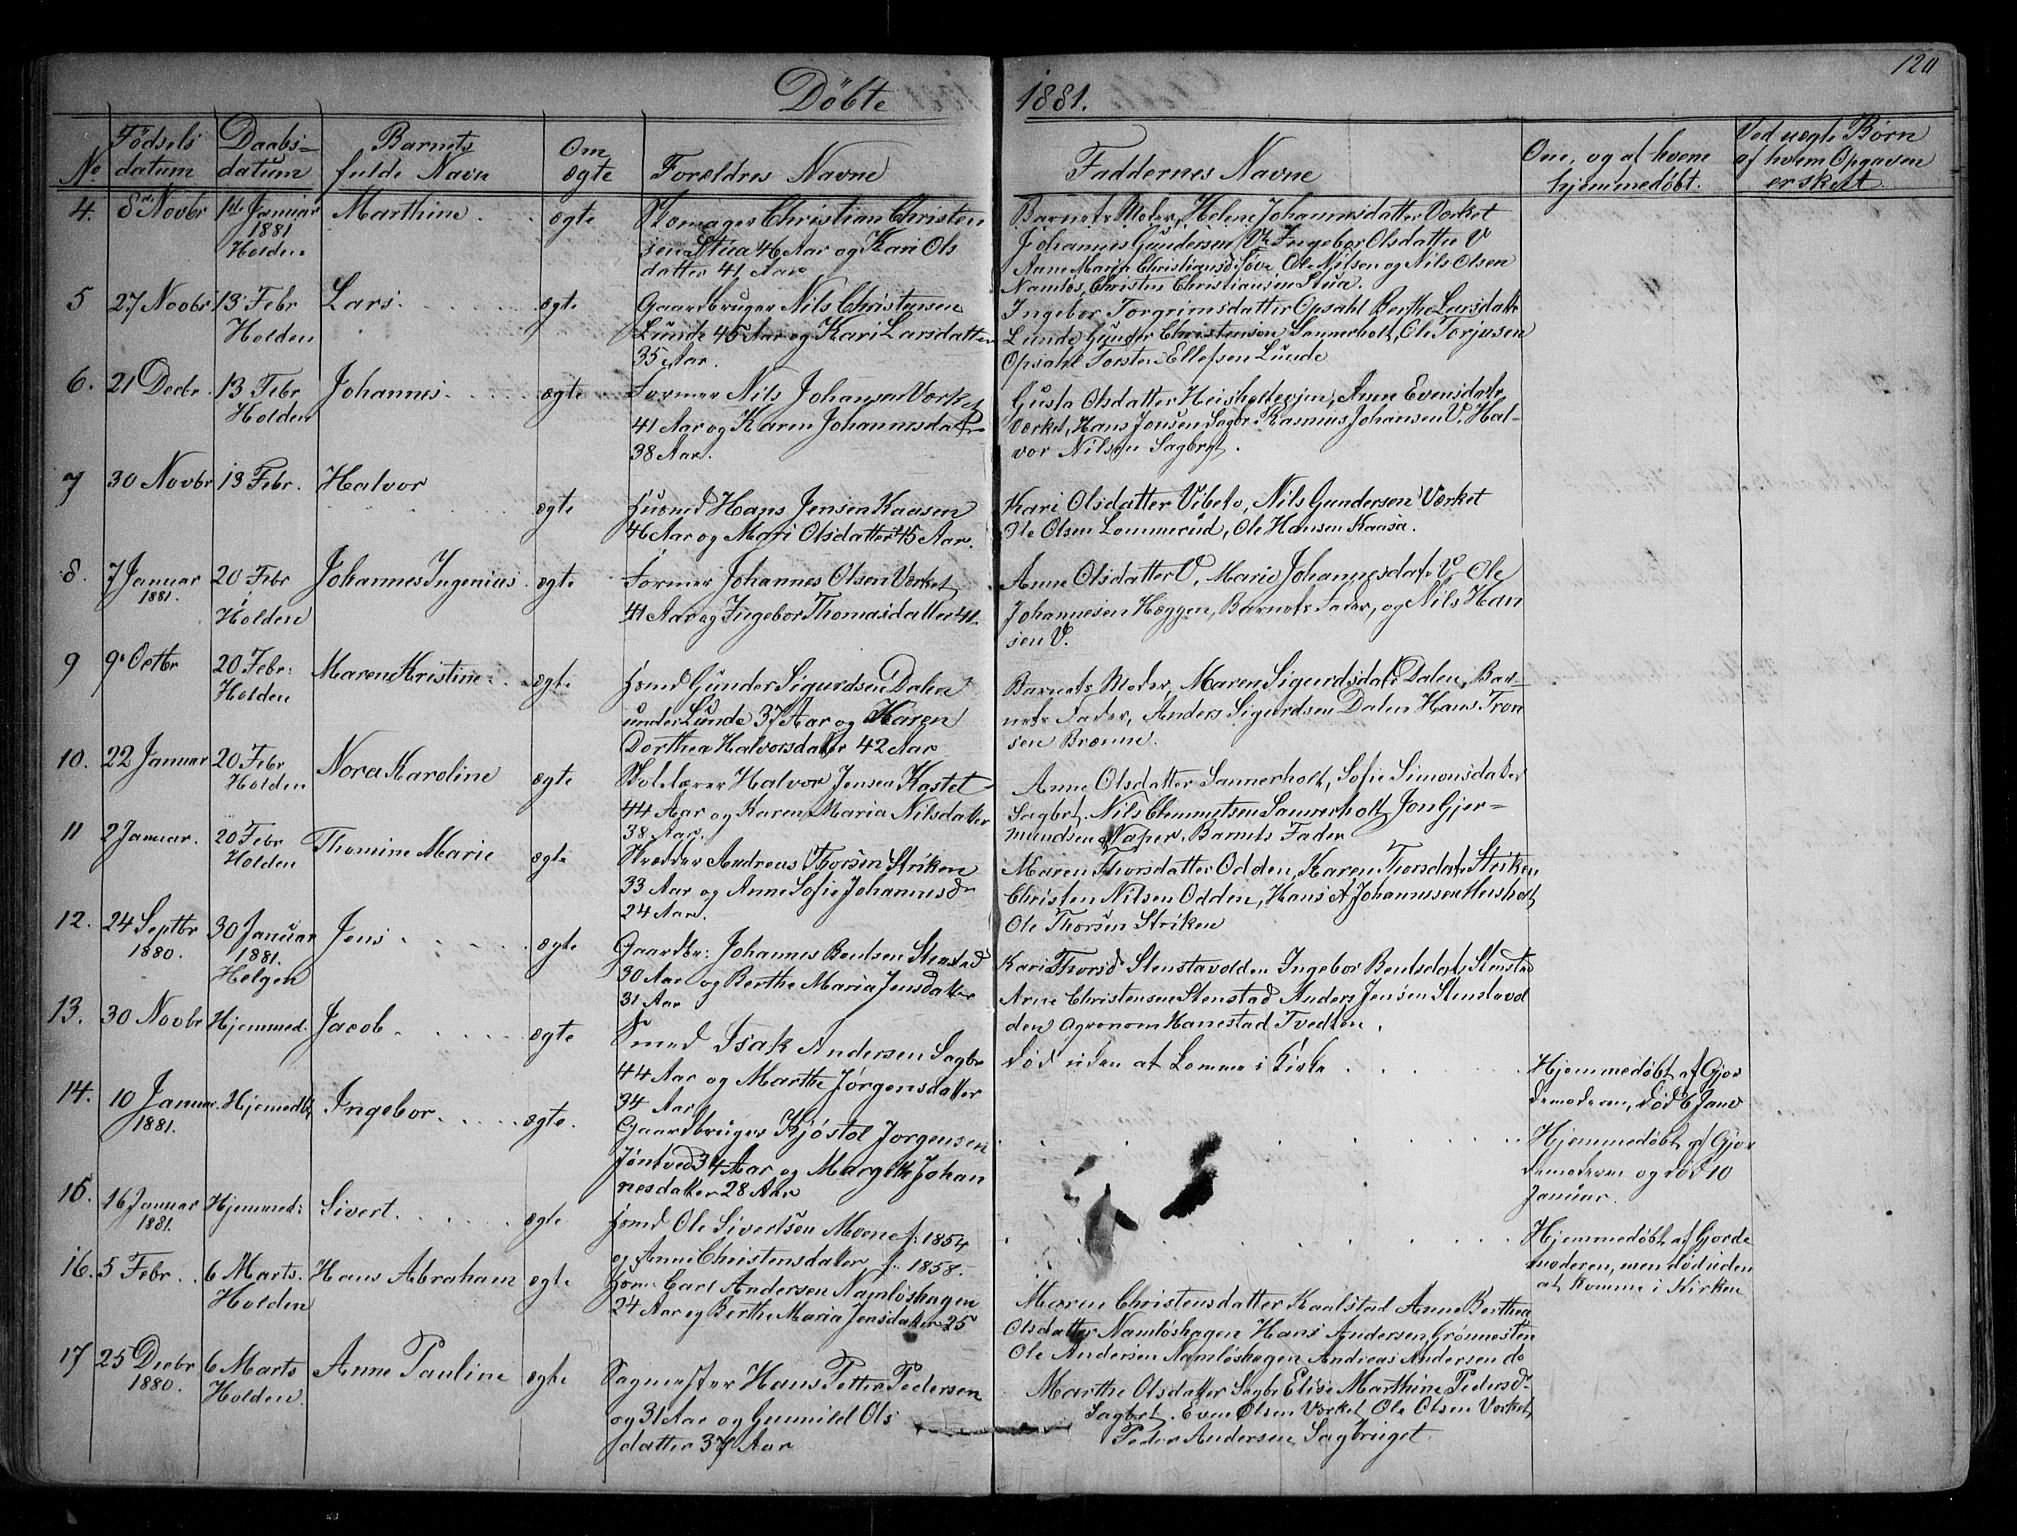 120
Døbte 1881.
No
Fødsels datum
Daabs- datum
Barnets fulde Navn
Om ægte
Forældres Navne
Faddernes Navne
Om, og af hvem hjemmedøbt.
Ved uægte Børn af hvem Opgaven er skeet.
4. 8de Novbr Januar 1881 Holden Marthine ægte
Skomager Christian Christen
sen Stua 46 Aar og Kari Ols
datter 41 Aar
Barnets Moder, Helene Johannesdatter Værket
Johannes Gundersen V. Ingebor Olsdatter V
Anne Maria Christiansd. Søve. Ole Nilsen og Nils Olsen
Namløs, Christen Christiansen Stua.
5 27 Novbr 13 Febr Holden Lars ægte
Gaardbruger Nils Christensen
Lunde 45 Aar og Kari Larsdatter
35 Aar.
Ingebor Torgrimsdatter Opsahl Berthe Larsdatter
Lunde Gunder Christensen Sannerholt, Ole Torjusen
Opsahl Torsten Ellefsen Lunde
6. 21 Decbr. 13 Febr Holden Johannes ægte
Former Nils Johansen Værket
41 Aar og Karen Johannesdatr
38 Aar.
Gusta Olsdatter Heisholtveien, Anne Evensdatr
Værket, Hans Jensen Sagbr. Rasmus Johansen V. Hal-
vor Nilsen Sagbrgt.
7 30 Novbr 13 Febr. Halvor ægte
Husmd Hans Jensen Kaasen
46 Aar og Mari Olsdatter 45 Aar.
Kari Olsdatter Vibeto, Nils Gundersen Værket
Ole Olsen Lommerud, Ole Hansen Kaasa.
8. 7 Januar 1881. 20 Febr Holden Johannes Ingenius ægte
Former Johannes Olsen Værket
41 Aar og Ingebor Thomasdatter 41.
Anne Olsdatter V, Marie Johannesdatr V. Ole
Johannesen Hæggen, Barnets Fader, og Nils Han
sen V.
9 9 Octbr 20 Febr: Holden Maren Kristine ægte
Hsmd Gunder Sigurdsen Dalen
under Lunde 37 Aar og Karen
Dorthea Halvorsdatter 42 Aar
Barnets Moder, Maren Sigurdsdatr Dalen, Bar-
nets Fader, Anders Sigurdsen Dalen Hans Tron
sen Brænne.
10. 22 Januar 20 Febr Holden Nora Karoline ægte
Skolelærer Halvor Jensen Kastet
44 Aar og Karen Maria Nilsdatter
38 Aar.
Anne Olsdatter Sannerholt, Sofie Simonsdatter
Sagbrt. Nils Clemmetsen Sannerholt Jon Gjer-
mundsen Naper. Barnets Fader
11 2 Januar. 20 Febr Holden Thomine Marie ægte
Skrædder Andreas Thorsen Striken
33 Aar og Anne Sofie Johannesdr
24 Aar.
Maren Thorsdatter Odden, Karen Thorsdatr Striken
Christen Nilsen Odden, Hans A Johannesen Heisholt
Ole Thorsen Striken
12. 24 Septbr 1880. 30 Januar 1881. Helgen Jens ægte
Gaardbr: Johannes Bentsen Stenstad
30 Aar og Berthe Maria Jensdatter
31 Aar
Kari Thorsd Stenstadvolden Ingebor Bentsdatr Stenstad
Arne Christensen Stenstad Anders Jensen Stenstavol
den Agronom Hanestad Tvedten.
13. 30 Novbr Hjemmed. Jacob ægte
Smed Isak Andersen Sagbr
44 Aar og Marthe Jørgensdatter
34 Aar
død uden at komme i Kirke
Hjemmedøbt af Gjor
demoderen, død 6 Janv
14. 10 Januar 1881. Hjemmedbt Ingebor ægte.
Gaardbruger Kjøstol Jørgensen
Jøntved 34 Aar og Margith Johan
nesdatter 28 Aar
Hjemmedøbt af Gjor
demoderen og død 10
Januar.
15. 16 Januar 1881. Hjemmed: Sivert. ægte
Hsmd Ole Sivertsen Moene f. 1854
og Anne Christensdatter f. 1858.
Hjemmedøbt af Gjorde
moderen, men død uden
at komme i Kirken
16. 5 Febr. 6 Marts. Holden Hans Abraham ægte
Hsm: Carl Andersen Namløshagen
24 Aar og Berthe Maria Jensdatter 25
Maren Christensdatter Kaalstad Anne Berthea
Olsdatter Namløshagen Hans Andersen Grønnesten
Ole Andersen Namløshagen Andreas Andersen do
17 25 Decbr 1880. 6 Marts Holden. Anne Pauline ægte
Sagmester Hans Petter Pedersen
og 31 Aar og Gunnild Ols
datter 37 Aar
Marthe Olsdatter Sagbr Elise Marthine Pedersdr
Sagbrt. Even Olsen Værket Ole Olsen Værket,
Peder Andersen Sagbruget.